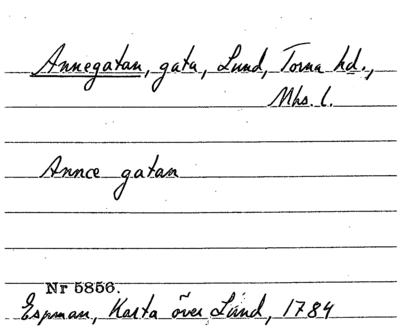 Annegatan, gata, Lund, Torna hd.,
Mhs. l.
Annce gatan
Nr 5856.
Espman, Karta över Lund, 1784